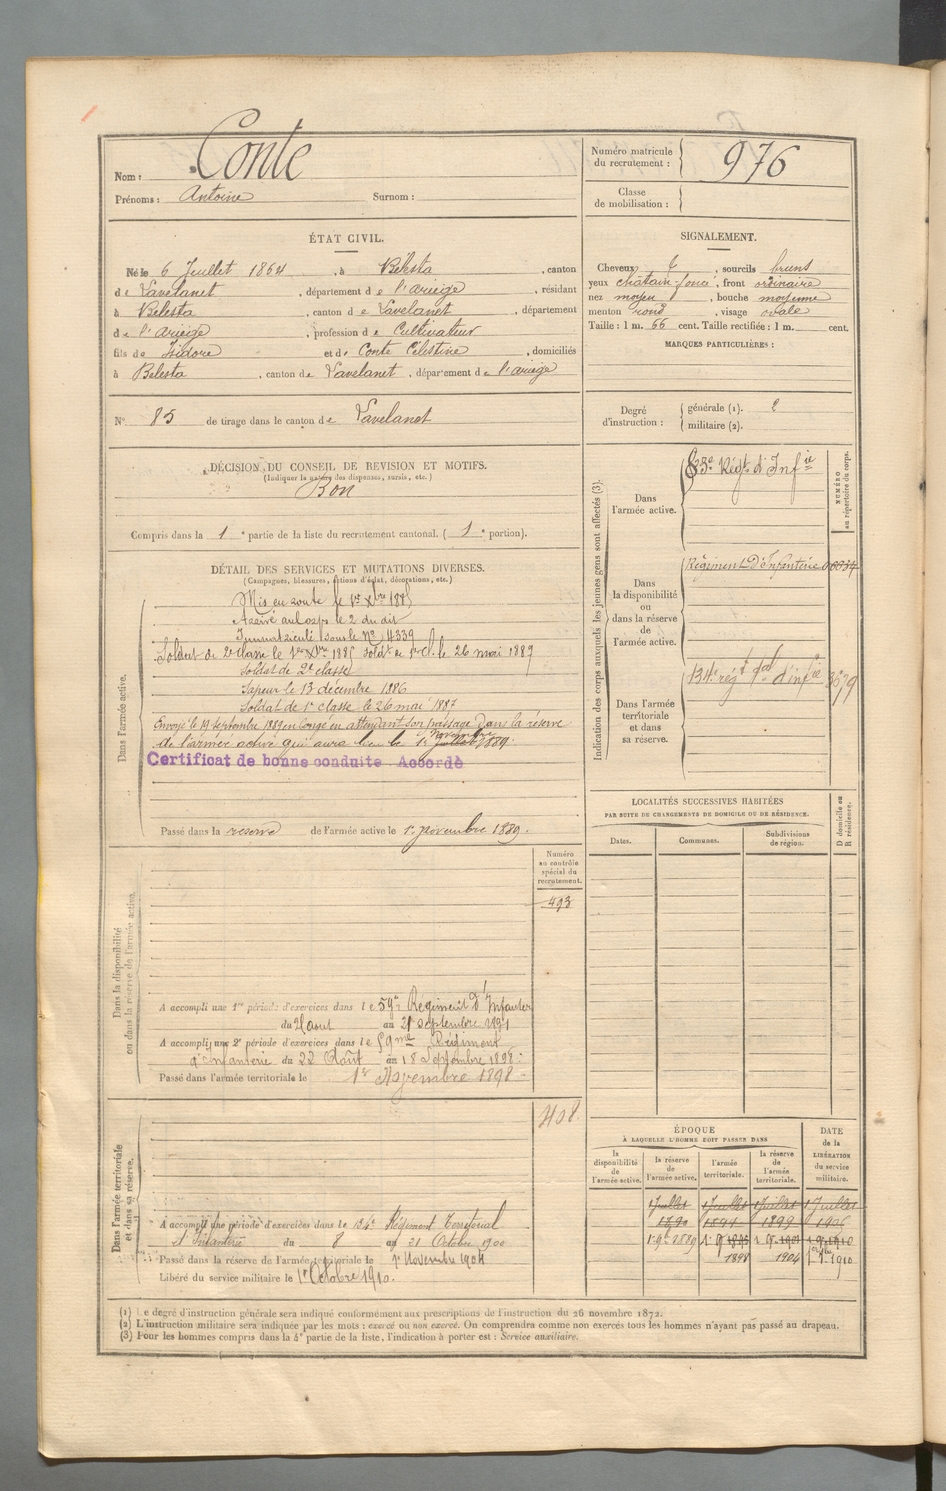 Nom : Conte
Prénoms : Antoine Surnom :
Numéro matricule
du recrutement : 976
Classe
de mobilisation :
ÉTAT CIVIL.
Né le 6 Juillet 1864, à Bélesta, canton
de Lavelanet, département de l'ariège, résidant
à Belesta, canton de Lavelanet, département
de l'Ariège, profession de Cultivateur
fils de Isidore et de Conte Célestine, domiciliés
à Belesta, canton de Lavelanet, département de l'ariège
N° 85 de tirage dans le canton de Lavelanet
SIGNALEMENT.
Cheveux, sourcils bruns
yeux chatain foncé, front ordinaire
nez moyen, bouche moyenne
menton rond, visage ovale
Taille : 1 m. 66 cent. Taille rectifiée : 1 m. cent.
MARQUES PARTICULIÈRES :
Degré
d'instruction :
générale (1). 2
militaire (2).
DÉCISION DU CONSEIL DE REVISION ET MOTIFS.
(Indiquer la nature des dispenses, sursis, etc.)
Bon
Compris dans la 1e partie de la liste du recrutement cantonal. (1e portion).
DÉTAIL DES SERVICES ET MUTATIONS DIVERSES.
(Campagnes, blessures, actions d'éclat, décorations, etc.)
Dans l'armée active.
Mis en route le 1er Xbre 1885
Arrivé au corps le 2 du dit
Immatriculé sous le N° 4339
Soldat de 2e classe le 1er Xbre 1885 Soldt de 1re Cl. le 26 mai 1887
Soldat de 2e classe
Sapeur le 13 décembre 1886
Soldat de 1e classe le 26 mai 1887
Envoyé le 19 septembre 1889 en congé en attendant son passage dans la réserve
de l'armée active qui aura lieu le 1er novembre juillet 1889.
Certificat de bonne conduite Accordé
Passé dans la reserve de l'armée active le 1er novembre 1889.
Dans la disponibilité
ou dans la réserve de l'armée active.
Numéro
au contrôle
spécial du
recrutement.
493
A accompli une 1re période d'exercices dans le 59e Régiment d'Infanterie
du aout au 21 septembre 1891
A accompli une 2e période d'exercices dans le 59me Régiment
d'Infanterie du 22 Août au 18 Septembre 1898
Passé dans l'armée territoriale le 1er Novembre 1898
Dans l'armée territoriale
et dans sa réserve.
408
A accompli une période d'exercices dans le 134e Régiment Territorial
d'Infanterie du 8 au 21 Octobre 1900
Passé dans la réserve de l'armée territoriale le 1er Novembre 1904
Libéré du service militaire le 1er Octobre 1910.
Indication des corps auxquels les jeunes gens sont affectés (3).
Dans
l'armée active.
83e Régt d'Infie
NUMÉRO
au répertoire du corps.
Dans
la disponibilité
ou
dans la réserve
de
l'armée active.
Régiment d'Infanterie
Dans l'armée
territoriale
et dans
sa réserve.
134e régt tal d'infie
LOCALITÉS SUCCESSIVES HABITÉES
PAR SUITE DE CHANGEMENTS DE DOMICILE OU DE RÉSIDENCE.
Dates. Communes. Subdivisions
de région.
D domicile ou
R résidence.
ÉPOQUE
À LAQUELLE L'HOMME DOIT PASSER DANS
la
disponibilité
de
l'armée active.
la réserve
de
l'armée active.
l'armée
territoriale.
la réserve
de
l'armée
territoriale.
DATE
de la
LIBÉRATION
du service
militaire.
1 Juillet 1 Juillet 1 Juillet 1 Juillet
1890 1894 1899 1905
1898 1904 1910
(1) Le degré d'instruction générale sera indiqué conformément aux prescriptions de l'instruction du 26 novembre 1872.
(2) L'instruction militaire sera indiquée par les mots : exercé ou non exercé. On comprendra comme non exercés tous les hommes n'ayant pas passé au drapeau.
(3) Pour les hommes compris dans la 4e partie de la liste, l'indication à porter est : Service auxiliaire.